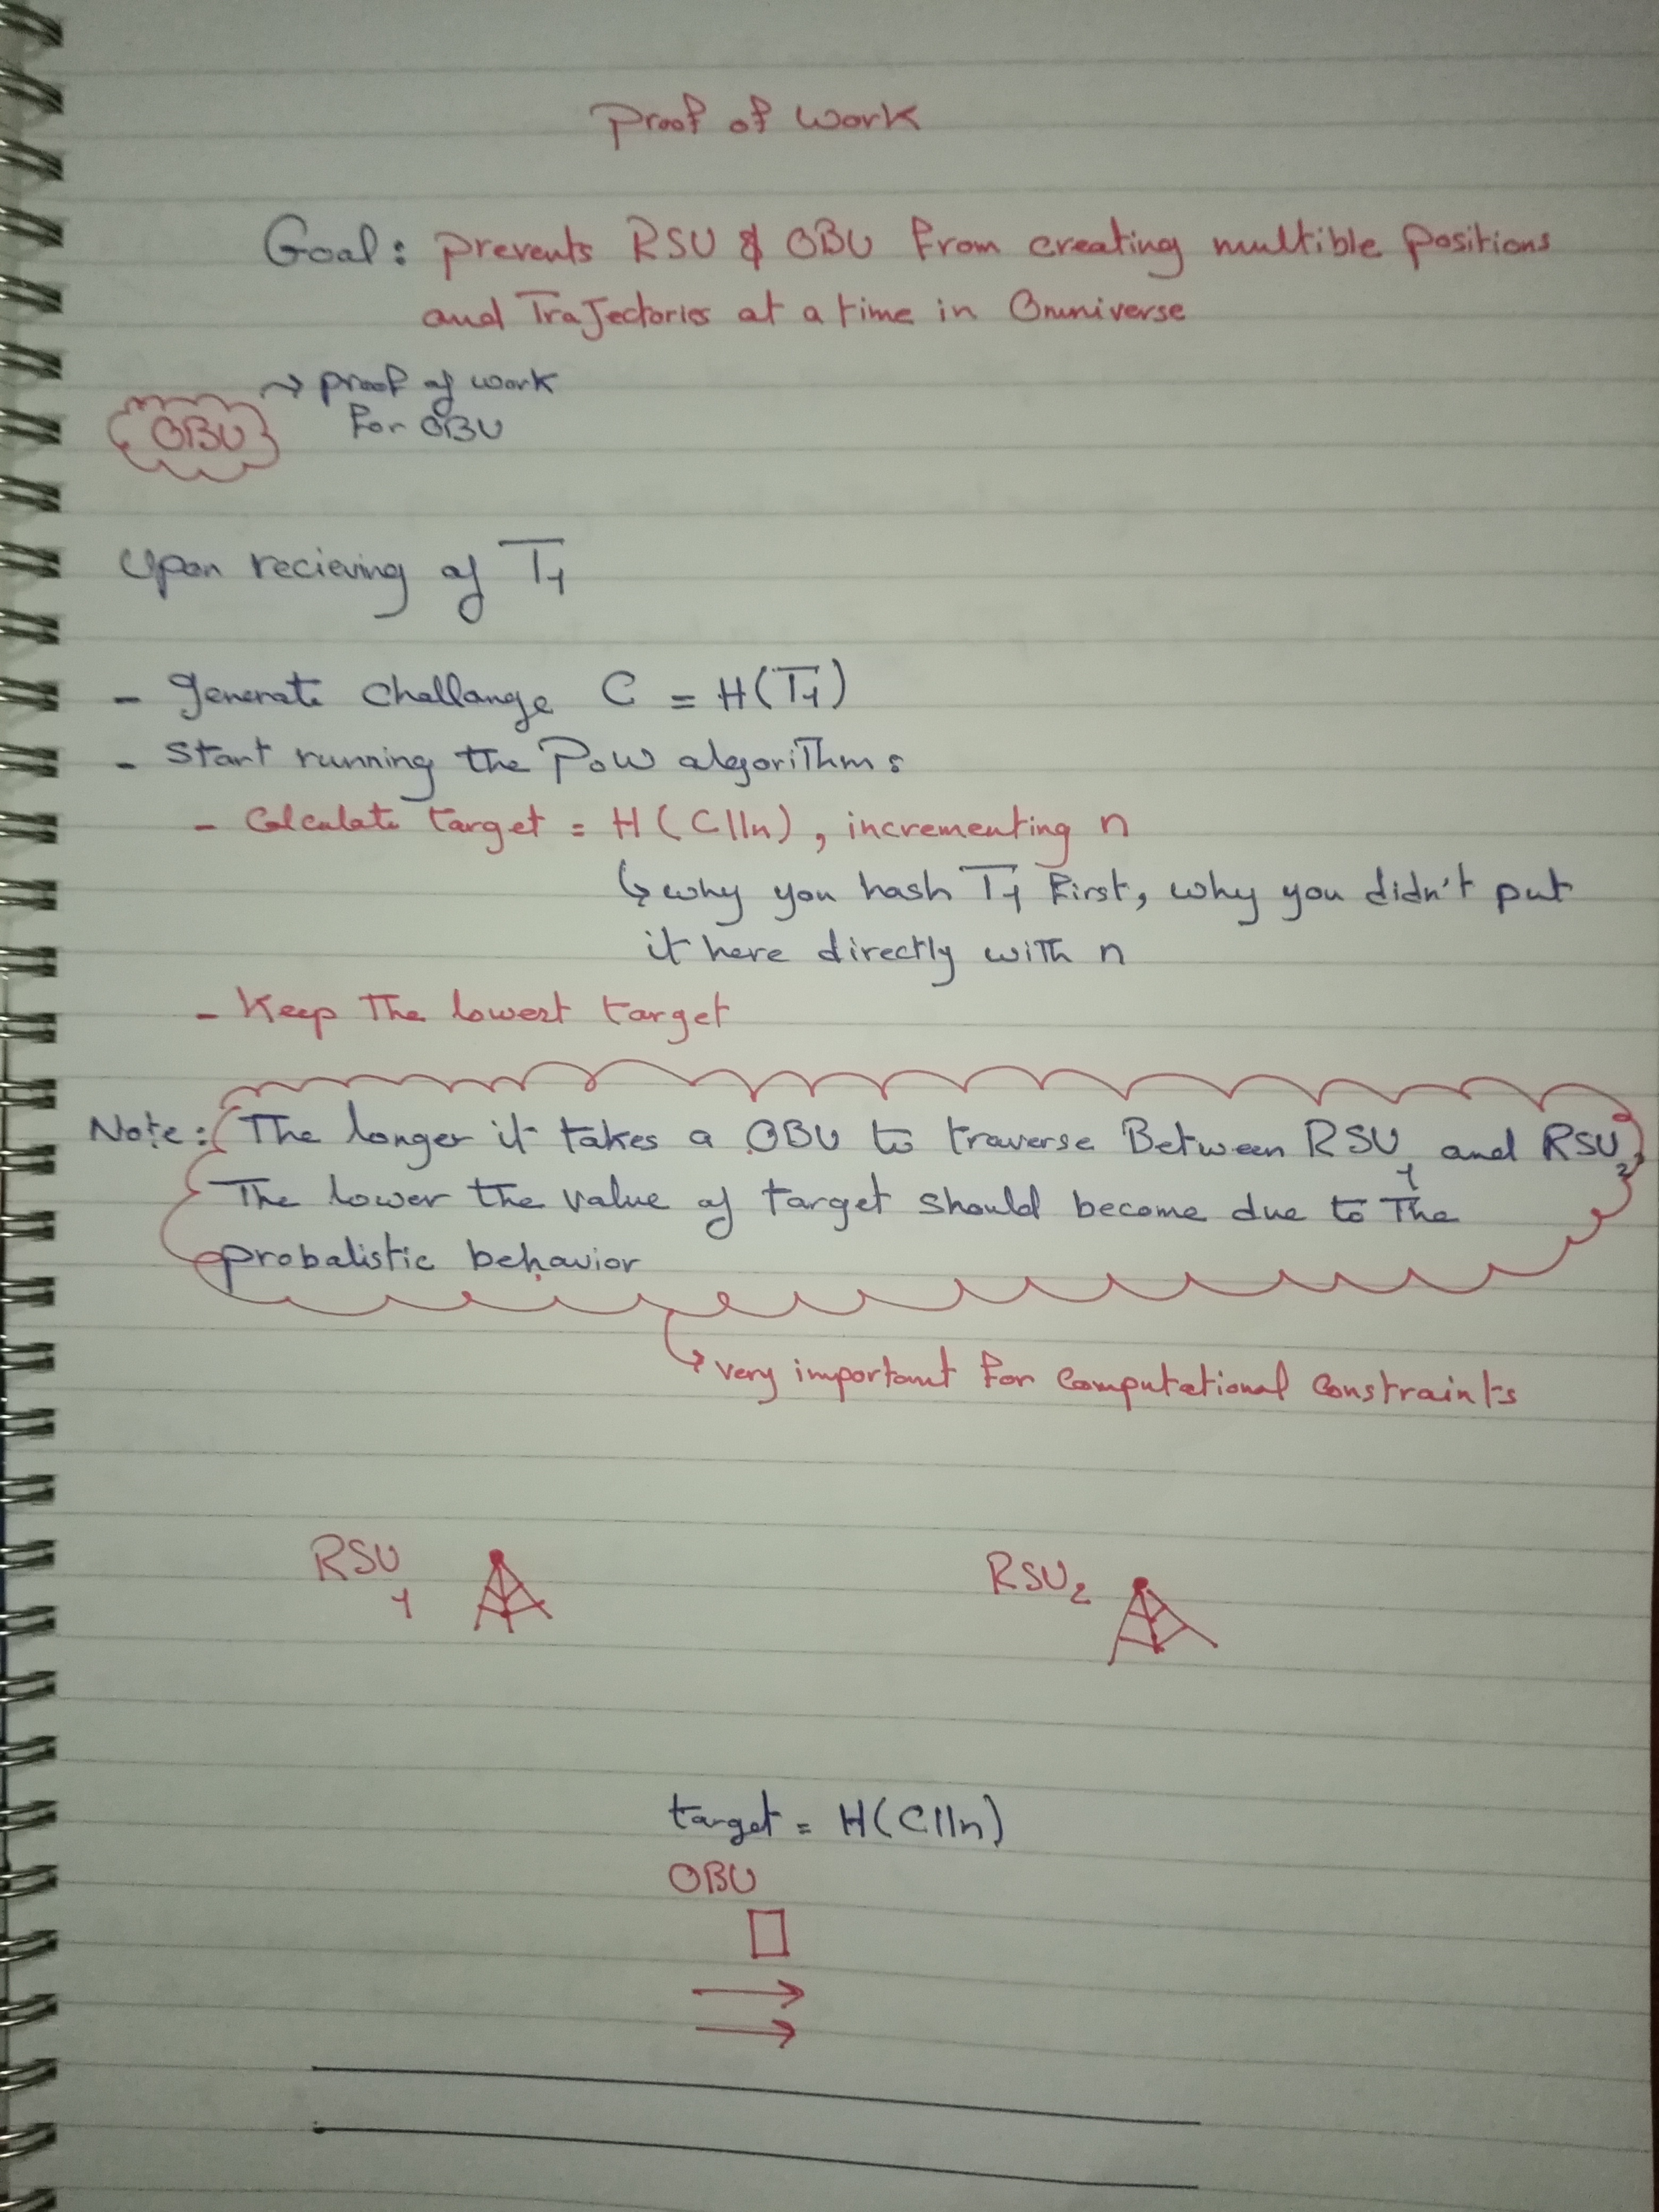 Proof of work
Goal: prevents RSU & OBU from creating multible positions
and Trajectories at a time in Omniverse
OBU → proof of work
for OBU
Upon recieving of T1
- generate challange C = H(T1)
- Start running the PoW algorithm:
- Calculate target = H(C||n), incrementing n
↳ why you hash T1 first, why you didn't put
it here directly with n
- Keep The lowest target
Note: The longer it takes a OBU to traverse Between RSU1 and RSU2,
The lower the value of target should become due to The
probalistic behavior
↳ very important for Computational Constraints
RSU1
RSU2
target = H(C||n)
OBU